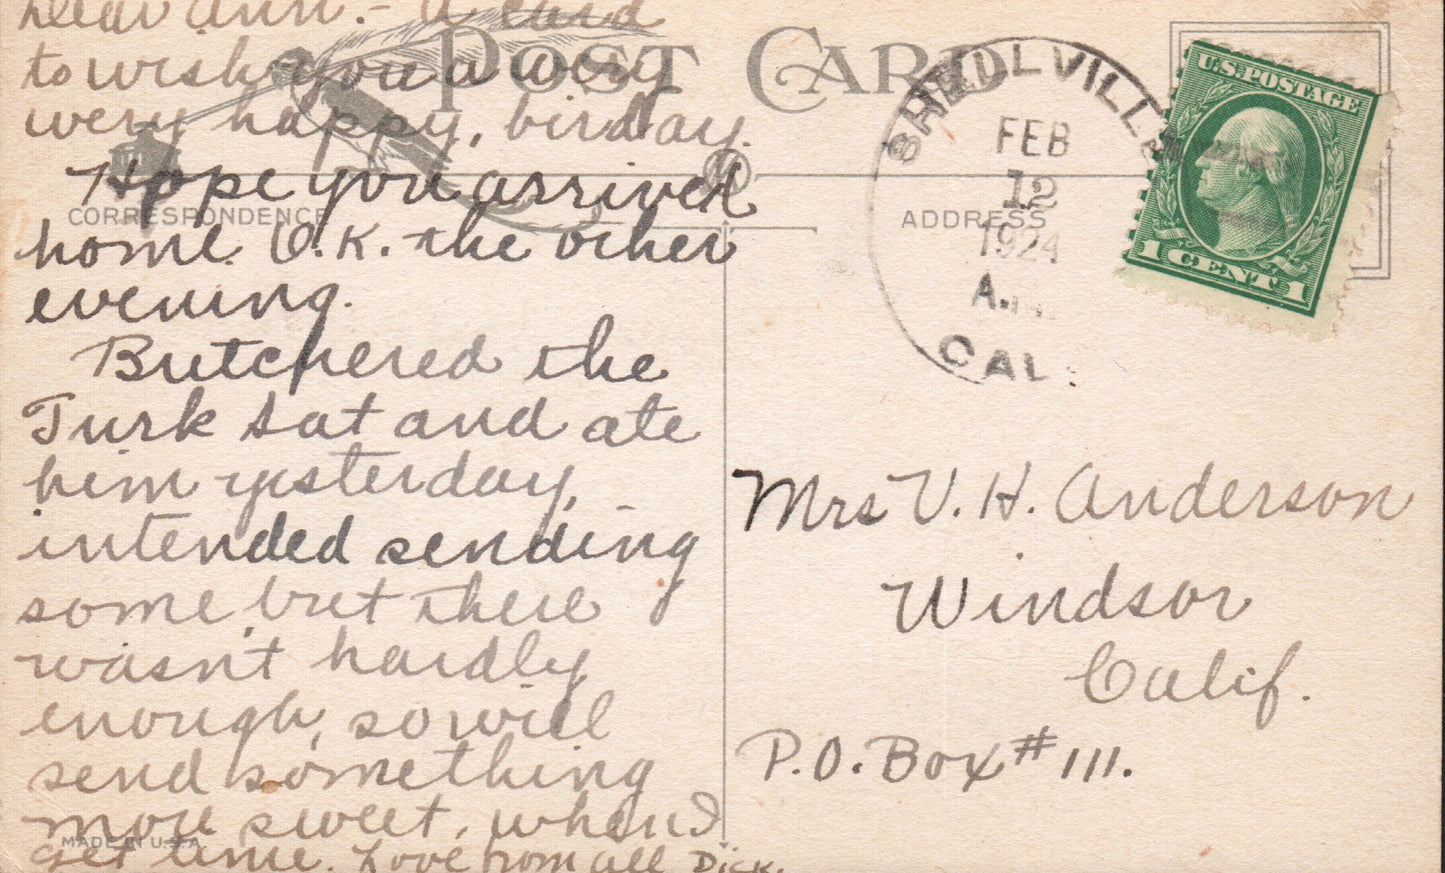 Dear Ann. - A card
to wish you a very
very happy, birday.
Hope you arrived
home O.K. the other
evening.
Butchered the
Turk Sat and ate
him yesterday,
intended sending
some, but there
wasn't hardly
enough, so will
send something
more sweet, when I
get time. Love from all Dick.
POST CARD
CORRESPONDENCE
ADDRESS
MADE IN U.S.A
SHELLVILLE
FEB
12
1924
A.M.
CAL.
U.S. POSTAGE
1 CENT 1
Mrs V. H. Anderson
Windsor
Calif.
P.O. Box # 111.